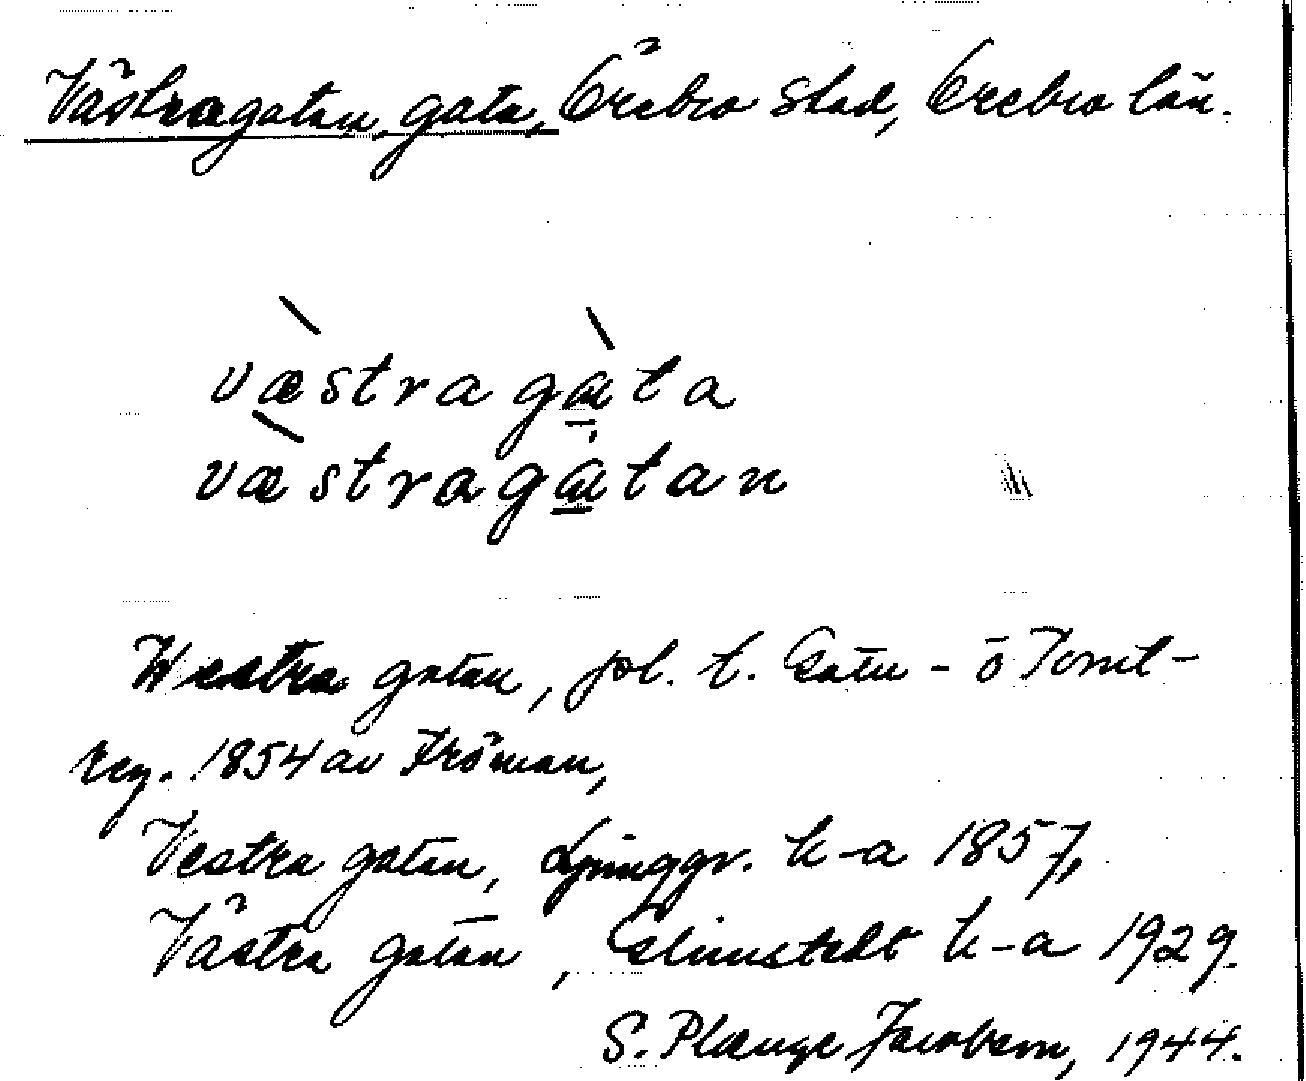 Västragatan, gata, Örebro stad, Örebro län.
væ̀stragàta
væ̀stragatan
Westra gatan, pol. t. Gatu- o Tomt-
reg. 1854 av Fröman,
Vestra gatan, Ljunggr. k-a 1857,
Västra gatan, k-a 1929.
S. Plænge Jacobson, 1944.